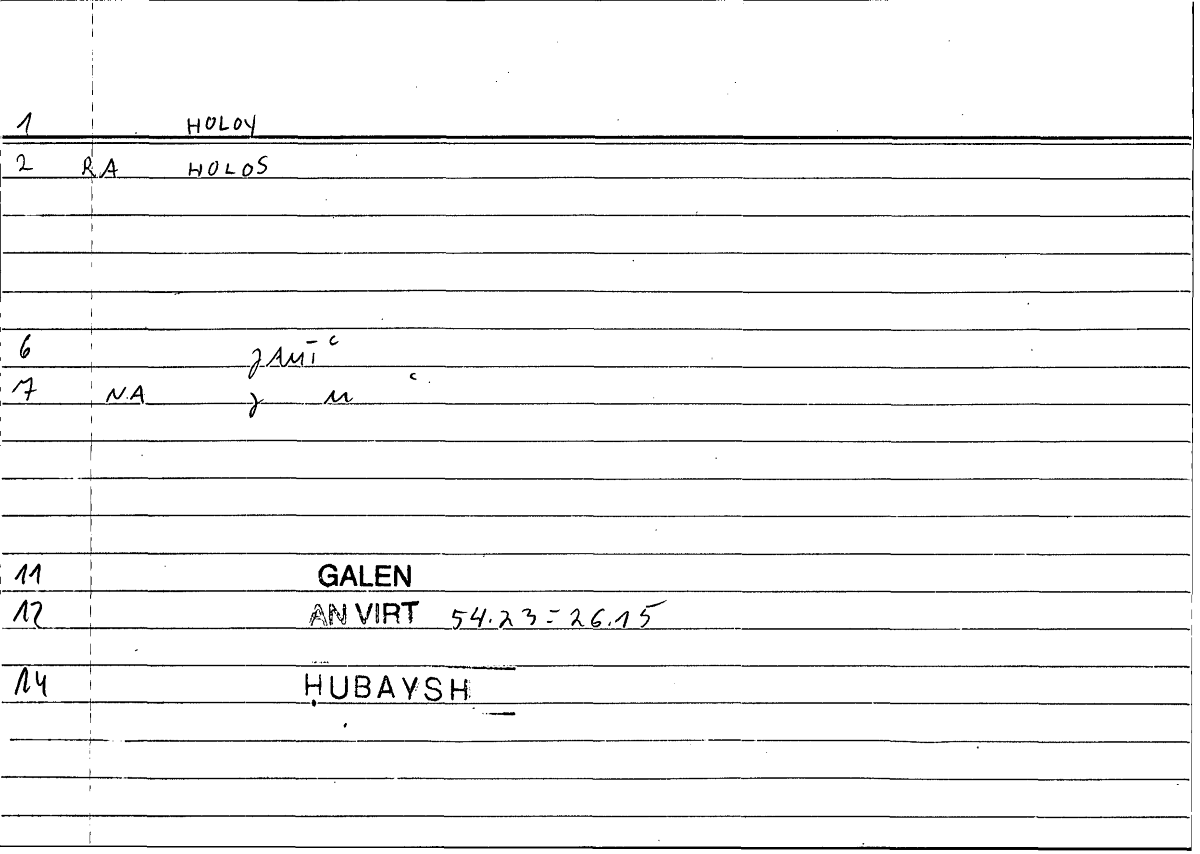 1 HOLOY
2 RA HOLOS
6 ǧAMĪʿ
7 NA ǧ M ʿ
11 GALEN
12 AN VIRT 54.23 = 26.15
14 ḤUBAYSH